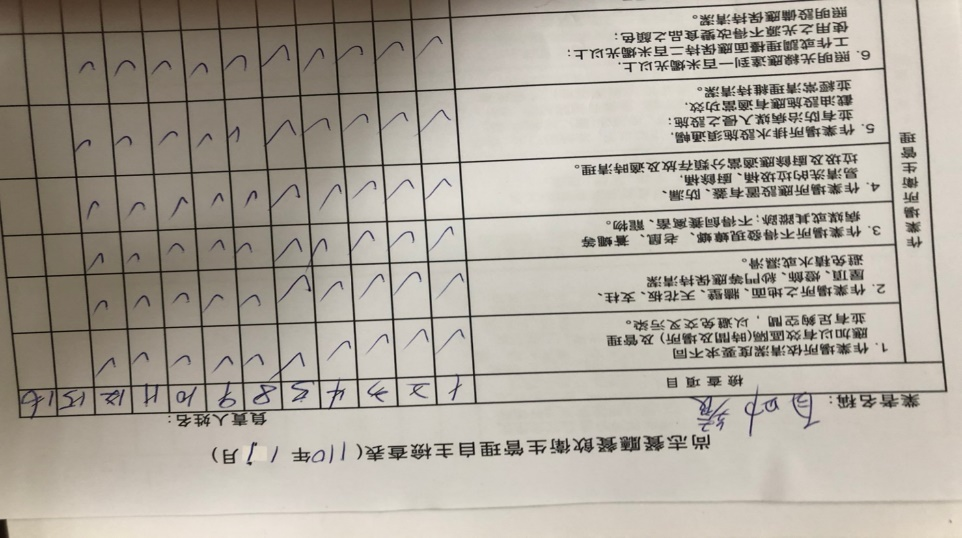 尚志餐廳餐飲衛生管理自主檢查表(110年1月)
業者名稱：
負責人姓名：
檢查項目 1 2 3 4 5 8 9 10 11 12 13
作業場所衛生管理
1. 作業場所依清潔度要求不同
應加以有效區隔(時間及場所)及管理
並有足夠空間，以避免交叉污染。
2. 作業場所之地面、牆壁、天花板、支柱、
屋頂、燈飾、紗門等應保持清潔
避免積水或濕滑。
3. 作業場所不得發現蟑螂、老鼠、蒼蠅等
病媒或其蹤跡；不得飼養禽畜、寵物。
4. 作業場所應設置有蓋、防漏、
易清洗的垃圾桶、廚餘桶，
垃圾及廚餘應適當分類存放及適時清理。
5. 作業場所排水設施須通暢，
並有防治病媒入侵之設施；
截油設施應有適當功效，
並經常清理維持清潔。
6. 照明光線應達到一百米燭光以上，
工作或調理檯面應保持二百米燭光以上；
使用之光源不得改變食品之顏色；
照明設備應保持清潔。